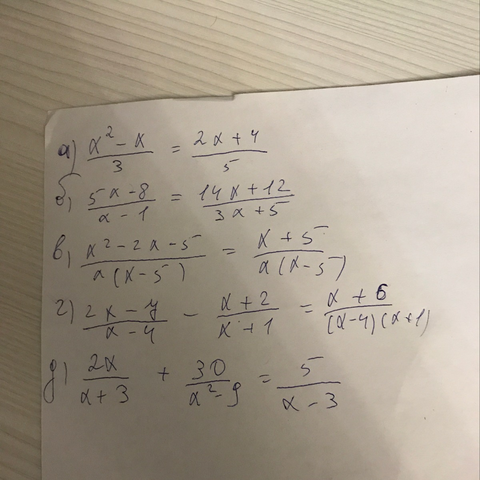 а) (x² - x)/3 = (2x + 4)/5
б) (5x - 8)/(x - 1) = (14x + 12)/(3x + 5)
в) (x² - 2x - 5)/(x(x - 5)) = (x + 5)/(x(x - 5))
г) (2x - y)/(x - 4) - (x + 2)/(x + 1) = (x + 6)/((x - 4)(x + 1))
д) 2x/(x + 3) + 30/(x² - 9) = 5/(x - 3)